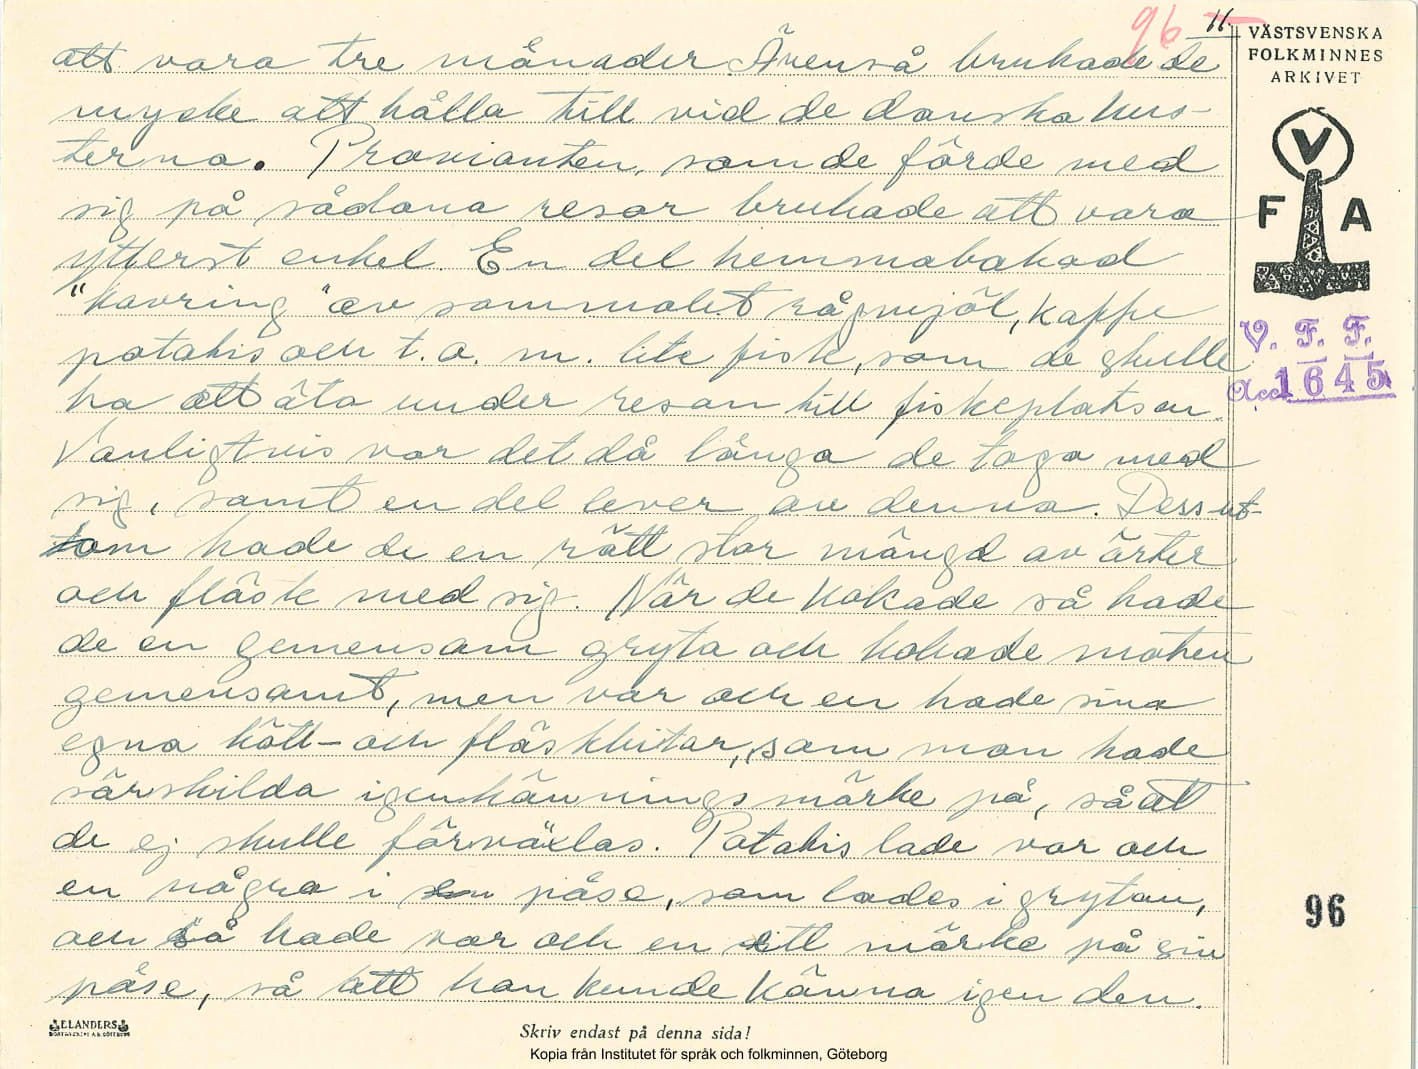 96 11.
att vara tre månader. Även så brukade de
mycke att hålla till vid de danska kus-
terna. Provianten, som de förde med
sig på sådana resor brukade att vara
ytterst enkel. En del hemmabakad
"kavring" av sammalet rågmjöl, kaffe
potatis och t. o. m. lite fisk, som de skulle
ha att äta under resan till fiskeplatsen.
Vanligtvis var det då långa de togo med
sig, samt en del lever av denna. Dess-ut-
tom hade de en rätt stor mängd av ärter
och fläsk med sig. När de kokade så hade
de en gemensam gryta och kokade maten
gemensamt, men var och en hade sina
egna kött- och fläskbitar, som man hade
särskilda igenkänningsmärke på, så att
de ej skulle förväxlas. Potatis lade var och
en några i en påse, som lades i grytan,
och så hade var och en sitt märke på sin
påse, så att han kunde känna igen den.
VÄSTSVENSKA
FOLKMINNES
ARKIVET
V
F A
V. F. F.
Acc. 1645
96
ELANDERS
Skriv endast på denna sida!
Kopia från Institutet för språk och folkminnen, Göteborg